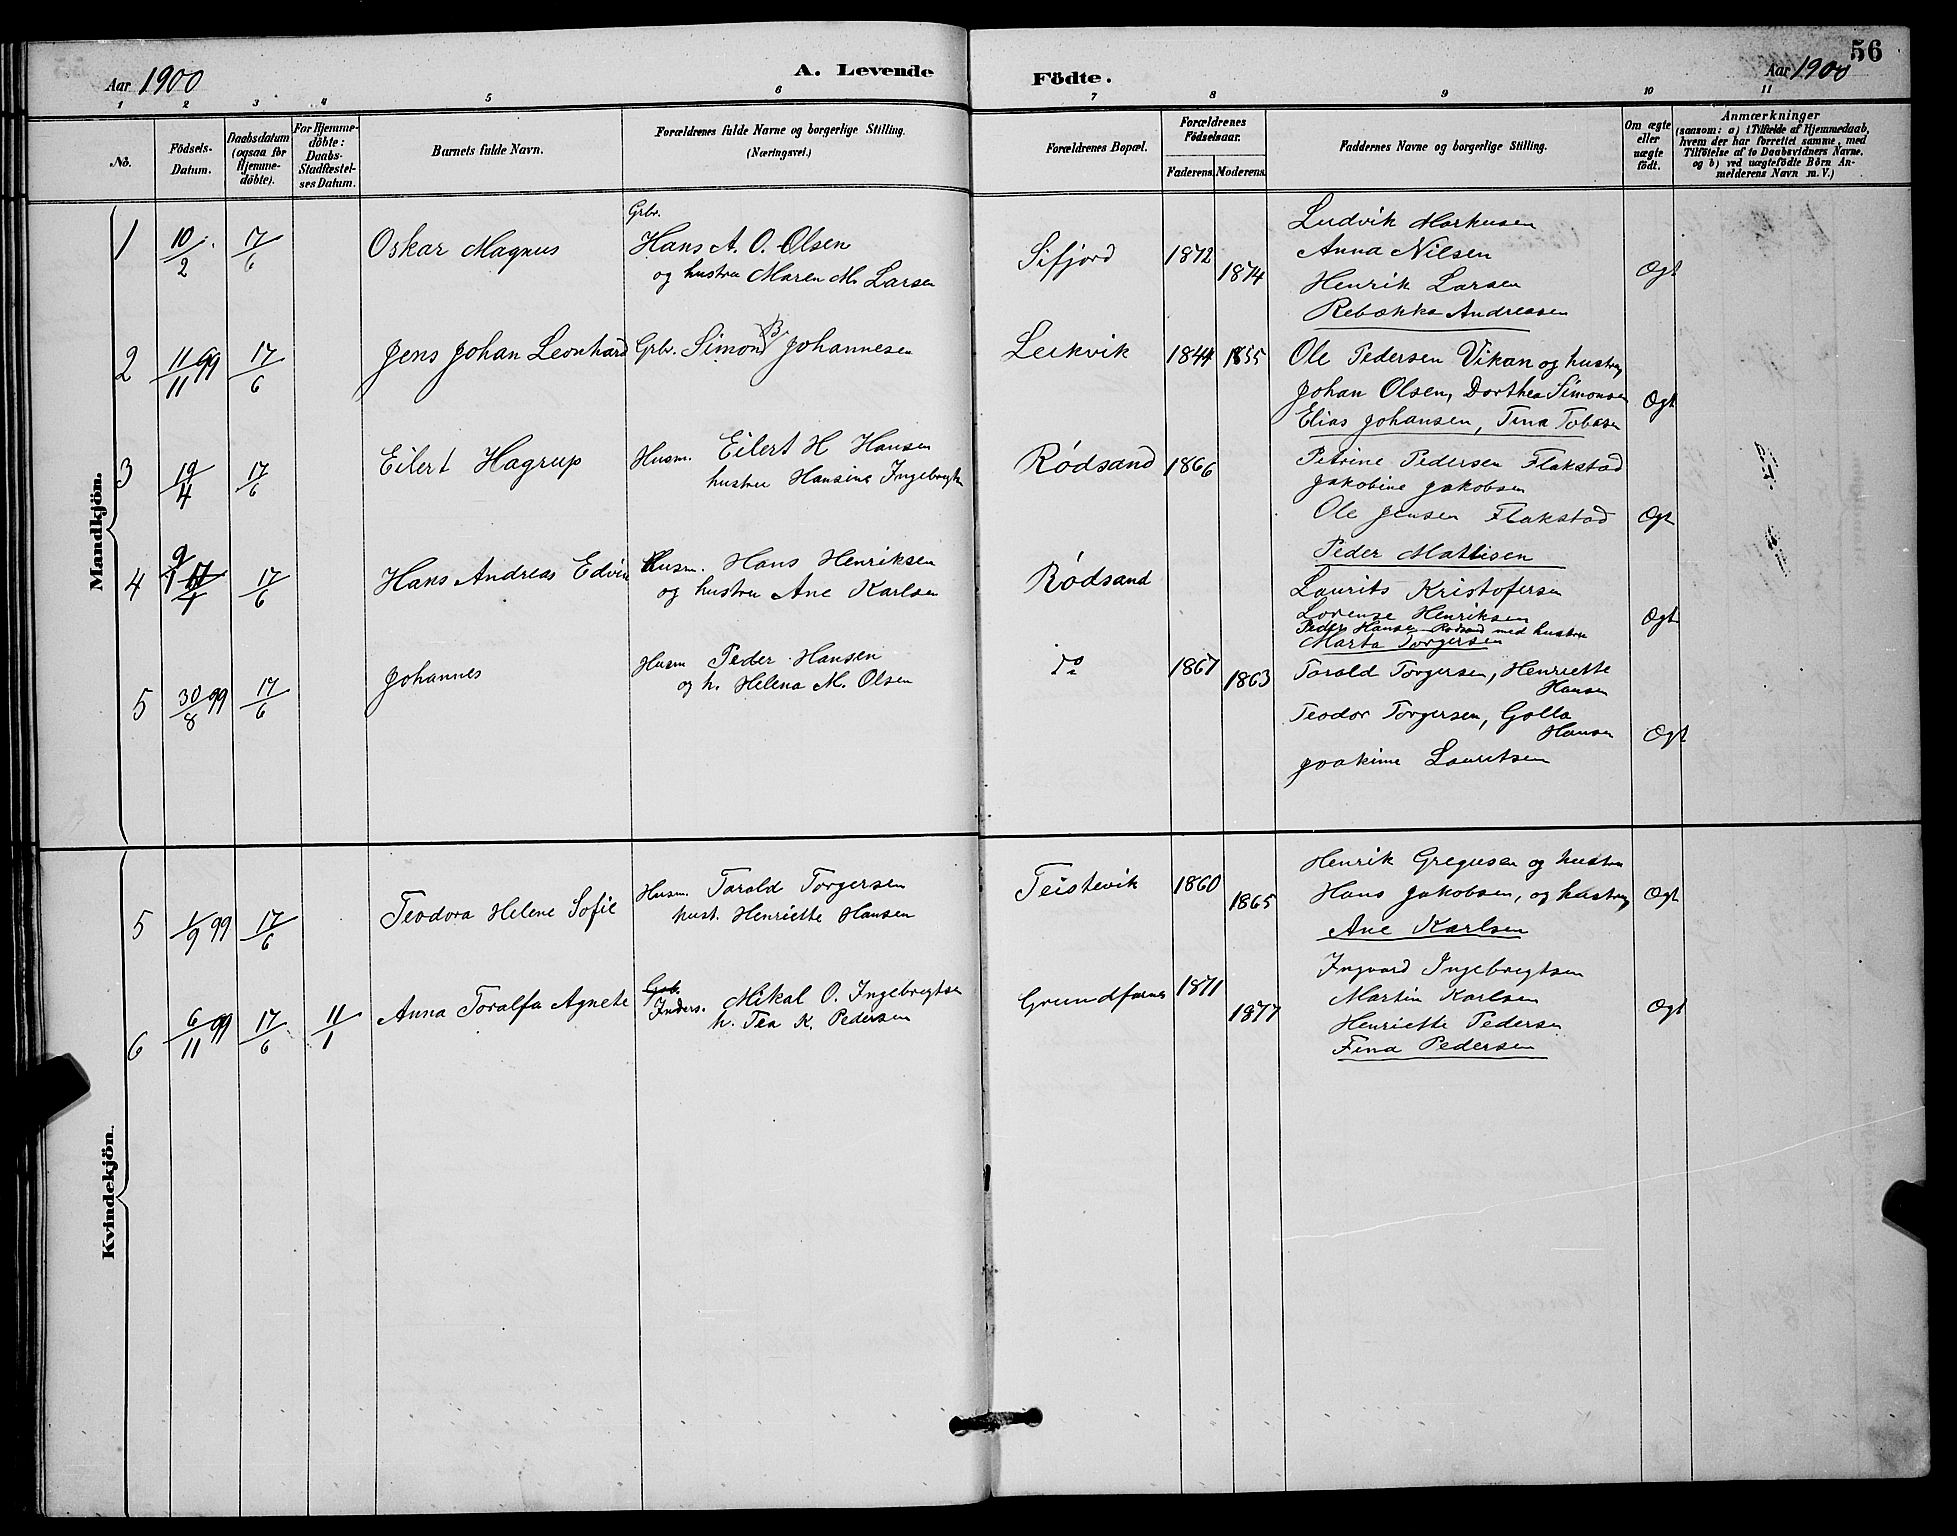 Aar 1900
A. Levende Födte.
Aar 1900
56
1 2 3 4 5 6 7 8 9 10 11
No.
Födsels-
Datum.
Daabsdatum
(ogsaa for
Hjemme-
döbte).
For Hjemme-
döbte:
Daabs-
Stadfæstel-
ses Datum.
Barnets fulde Navn.
Forældrenes fulde Navne og borgerlige Stilling.
(Næringsvei.)
Forældrenes Bopæl.
Forældrenes
Födselsaar.
Faderens. Moderens.
Faddernes Navne og borgerlige Stilling.
Om ægte
eller
uægte
födt.
Anmærkninger
(saasom: a) i Tilfælde af Hjemmedaab,
hvem der har forrettet samme, med
Tilföielse af to Daabsvidners Navne,
og b) ved uægtefödte Börn An-
melderens Navn m. V.)
Mandkjön.
1 10/2 17/6 Oskar Magnus
Grbr.
Hans A. O. Olsen
og hustru Maren M. Larsen
Sifjord 1872 1874
Ludvik Markusen
Anna Nilsen
Henrik Larsen
Rebekka Andreasen
Ægt
2 11/11 99 17/6 Jens Johan Leonhard
Grbr. Simon B. Johannesen
Leikvik 1844 1855
Ole Pedersen Vikan og hustru
Johan Olsen, Dorthea Simonsen
Elias Johansen, Tina Tobesen
Ægt
3 19/4 17/6 Eilert Hagrup
Husm. Eilert H Hansen
hustru Hansine Ingebrigts
Rødsand 1866
Petrine Pedersen Flakstad
Jakobine Jakobsen
Ole Jensen Flakstad
Peder Mattisen
Ægt
4 9/1 17/6 Hans Andreas Edvin
Husm. Hans Henriksen
og hustru Ane Karlsen
Rødsand
Laurits Kristofersen
Lorense Henriksen
Peder Hansen Rødsand med hustru
Marta Torgersen
Ægt
5 30/8 99 17/6 Johannes
Husm Peder Hansen
og h. Helena M. Olsen
do 1867 1863
Torald Torgersen, Henriette
Hansen
Teodor Torgersen, Golla
Hansen
Joakime Lauritsen
Ægt
Kvindekjön.
5 1/9 99 17/6 Teodora Helene Sofie
Husm. Torald Torgersen
hust. Henriette Hansen
Teistevik 1860 1865
Henrik Gregusen og hustru
Hans Jakobsen, og hustru
Ane Karlsen
Ægt
6 6/11 99 17/6 11/1 Anna Toralfa Agnete
Grb.
Inders. Mikal O. Ingebregtsen
h. Tea K. Pedersen
Grundfarnes 1871 1877
Ingvard Ingebregtsen
Martin Karlsen
Henriette Pedersen
Fina Pedersen
Ægt